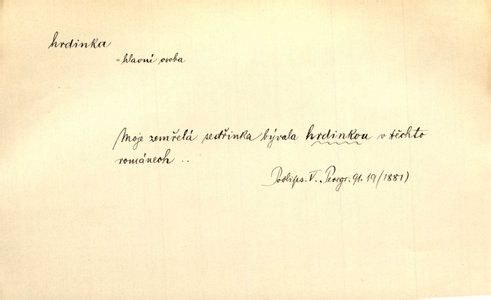 hrdinka
= hlavní osoba
Moje zemřelá sestřinka bývala hrdinkou v těchto
románech ..
Podlips. V. Peregr. 91. 19 (1881)